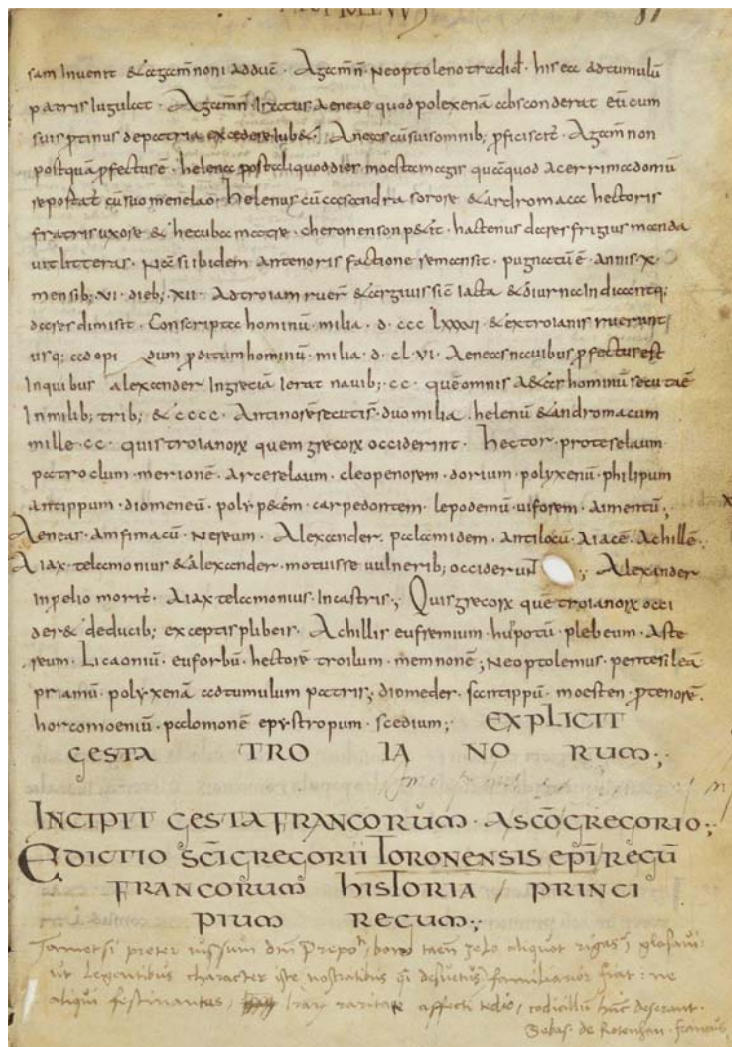 sam Inuenit & agam̄noni adduc̄ · Agam̄n̄ · Neoptoleno tradid̄ · his ea ad tumulū
patris Iugulat · Agam̄n̄ Iratus aeneae quod polexenā absconderat eū cum
suis p̄tinus de patria excedere Iub& · Aneas cū suis omnib; p̄ficiscit̄ · Agam̄non
postquā p̄fectus ē · helena post aliquod dies moesta magis quā quod acerrima domū
repostat̄ cū suo menelao · helenus cū casandra sorore & andromaca hectoris
fratris uxore & hecuba matre · cheronenson p&it · hactenus dares frigius manda
uit litteras · Nā si ibidem antenoris factione remansit · pugnatū ē · annis · x ·
mensib; · vi · dieb; · xii · ad troiam ruer̄ & argiui sic̄ iacta & diurna Indicantq;
dares dimisit · Conscripta hominū · milia · d · ccc lxxxvi · & ex troianis ruerunt
usq; ad opi dum p̄ditum hominū · milia · d · cl · vi · Aeneas nauibus p̄fectus est
In quibus alexander In grecia ierat nauib; · cc · quē omnis a&as hominū secuta ē
In milib; trib; & cccc · Antinorē secuti s̄ · duo milia · helenū & andromacum
mille · cc · quis troianorum quem grecorum occiderint · hector · proteselaum
patroclum · merionē · arceselaum · cleopenorem · dorium · polyxenū · philipum
antippum · diomeneū · poly p&em · carpedontem · lepodemū · uiforem · aimentū ;
Aeneas · amfimacū · nereum · Alexander · palamidem · antilocū · aiacē · achillē ·
Aiax · telamonius & alexander · motuisse uulnerib; occiderunt ; Alexander
in p̄elio morit̄ · Aiax telamonius · In castris ; Quis grecorum quē troianorum occi
der& deducib; exceptis plibeis · Achillis eufremium · hup̄otū · plebeum · Aste
reum · Licaoniū · euforbū · hectorē troilum · memnonē ; Neoptolemus · pentesileā
priamū · polyxenā ad tumulum patris ; diomedes · santippū · moesten · p̄tenorē ·
horcomoeniū · palomonē epystropum · scedium ; EXPLICIT
GESTA TRO IA NO RUM ;
INCIPIT GESTA FRANCORUM · A SC̄O GREGORIO ;
EDICTIO SC̄I GREGORII TORONENSIS EP̄I REGŪ
FRANCORUM HISTORIA / PRINCI
PIUM REGUM ;
Tametsi preter iussum dn̄i Prepo, bono tam̄ zelo aliquot rigas glosaui:
ut Legentibus character iste nostratibus q̄ desuetus familiarior fiat: ne
aliqui festinantes, raritate affecti tedio, codicillū hūc deserant.
Sebas. de Rotenhan. francus